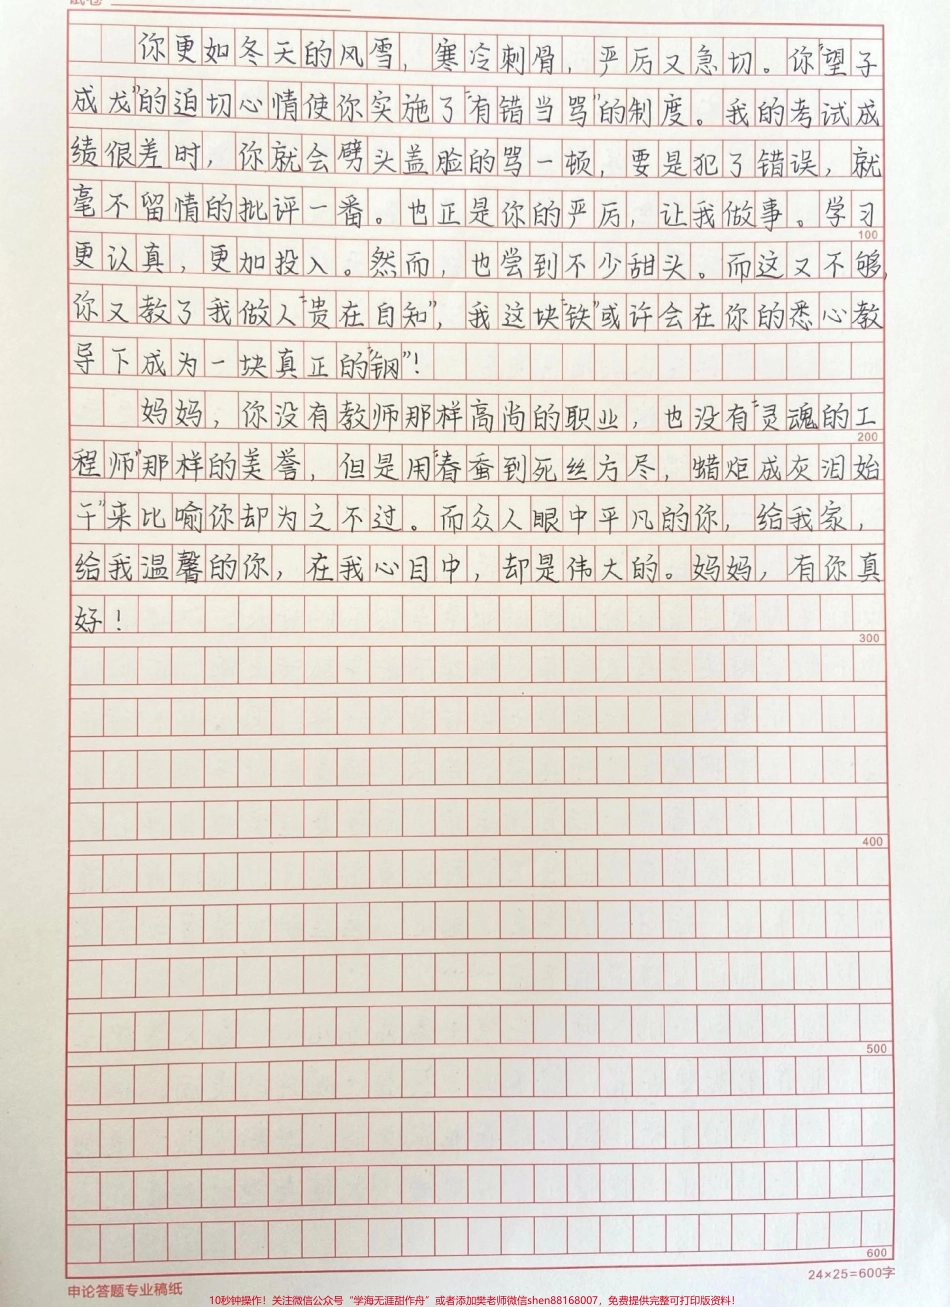 你更如冬天的风雪，寒冷刺骨，严厉又急切。你“望子
成龙”的迫切心情使你实施了“有错当骂”的制度。我的考试成
绩很差时，你就会劈头盖脸的骂一顿，要是犯了错误，就
毫不留情的批评一番。也正是你的严厉，让我做事。学习
100
更认真，更加投入。然而，也尝到不少甜头。而这又不够，
你又教了我做人“贵在自知”，我这块“铁”或许会在你的悉心教
导下成为一块真正的“钢”！
妈妈，你没有教师那样高尚的职业，也没有“灵魂的工
200
程师”那样的美誉，但是用“春蚕到死丝方尽，蜡炬成灰泪始
干”来比喻你却为之不过。而众人眼中平凡的你，给我家，
给我温馨的你，在我心目中，却是伟大的。妈妈，有你真
好！
300
400
500
600
24×25=600字
申论答题专业稿纸
10秒钟操作！关注微信公众号“学海无涯甜作舟”或者添加樊老师微信shen88168007，免费提供完整可打印版资料！